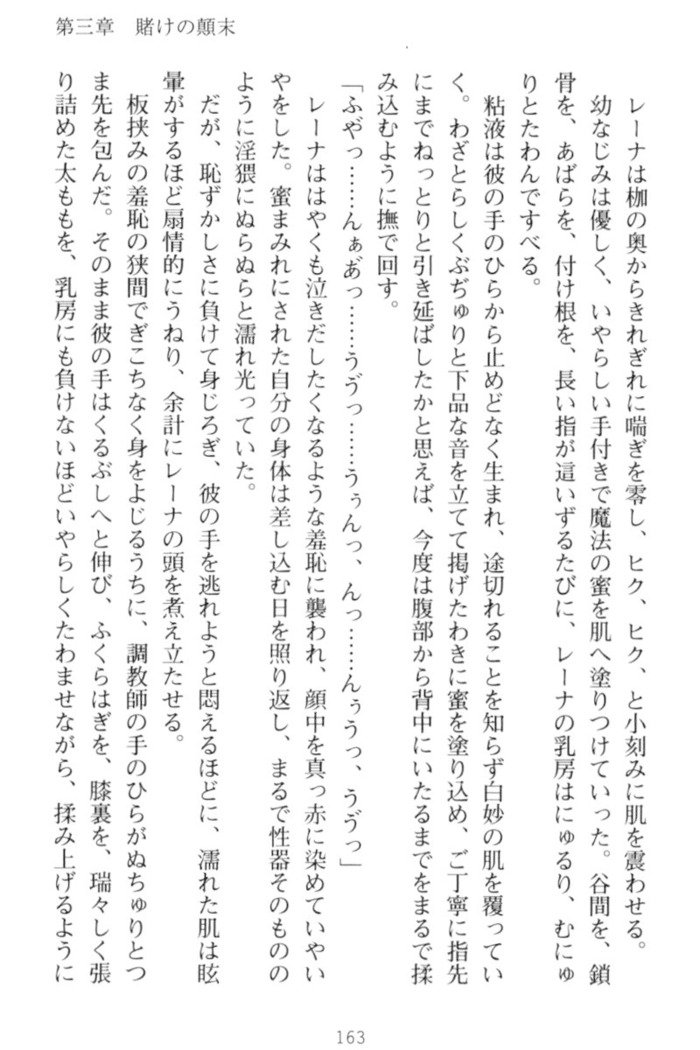 第三章　賭けの顛末
　レーナは枷の奥からきれぎれに喘ぎを零し、ヒク、ヒク、と小刻みに肌を震わせる。
　幼なじみは優しく、いやらしい手付きで魔法の蜜を肌へ塗りつけていった。谷間を、鎖
骨を、あばらを、付け根を、長い指が這いずるたびに、レーナの乳房はにゅるり、むにゅ
りとたわんですべる。
　粘液は彼の手のひらから止めどなく生まれ、途切れることを知らず白妙の肌を覆ってい
く。わざとらしくぶぢゅりと下品な音を立てて掲げたわきに蜜を塗り込め、ご丁寧に指先
にまでねっとりと引き延ばしたかと思えば、今度は腹部から背中にいたるまでをまるで揉
み込むように撫で回す。
「ふや゙っ……んぁあ゙っ……うゔっ……うぅんっ、んっ……んぅうっ、うゔっ」
　レーナははやくも泣きだしたくなるような羞恥に襲われ、顔中を真っ赤に染めていやい
やをした。蜜まみれにされた自分の身体は差し込む日を照り返し、まるで性器そのものの
ように淫猥にぬらぬらと濡れ光っていた。
　だが、恥ずかしさに負けて身じろぎ、彼の手を逃れようと悶えるほどに、濡れた肌は眩
暈がするほど扇情的にうねり、余計にレーナの頭を煮え立たせる。
　板挟みの羞恥の狭間でぎこちなく身をよじるうちに、調教師の手のひらがぬちゅりとつ
ま先を包んだ。そのまま彼の手はくるぶしへと伸び、ふくらはぎを、膝裏を、瑞々しく張
り詰めた太ももを、乳房にも負けないほどいやらしくたわませながら、揉み上げるように
163